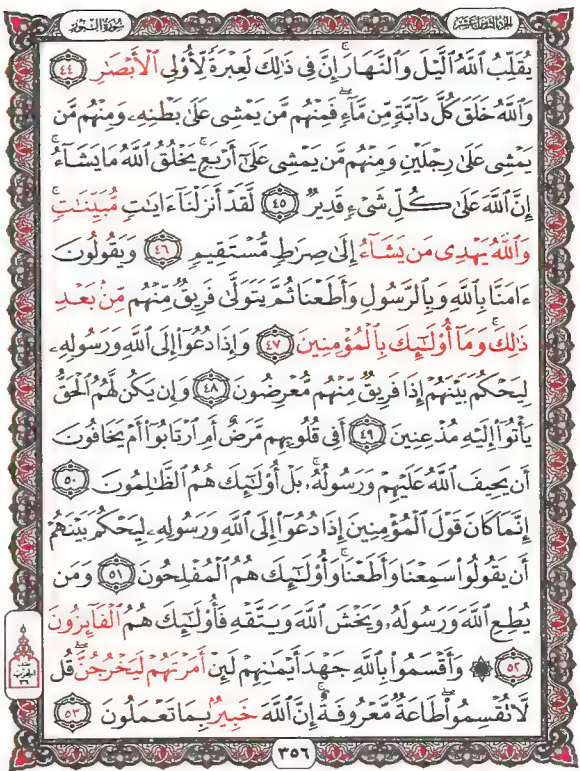 الجزء الثامن عشر
سورة النور
يُقَلِّبُ ٱللَّهُ ٱلَّيۡلَ وَٱلنَّهَارَۚ إِنَّ فِى ذَٰلِكَ لَعِبۡرَةً لِّأُو۟لِى ٱلۡأَبۡصَٰرِ ٤٤
وَٱللَّهُ خَلَقَ كُلَّ دَآبَّةٍ مِّن مَّآءٍۖ فَمِنۡهُم مَّن يَمۡشِى عَلَىٰ بَطۡنِهِۦ وَمِنۡهُم مَّن
يَمۡشِى عَلَىٰ رِجۡلَيۡنِ وَمِنۡهُم مَّن يَمۡشِى عَلَىٰٓ أَرۡبَعٍۚ يَخۡلُقُ ٱللَّهُ مَا يَشَآءُۚ
إِنَّ ٱللَّهَ عَلَىٰ كُلِّ شَىۡءٍ قَدِيرٌ ٤٥ لَّقَدۡ أَنزَلۡنَآ ءَايَٰتٍ مُّبَيِّنَٰتٍۚ
وَٱللَّهُ يَهۡدِى مَن يَشَآءُ إِلَىٰ صِرَٰطٍ مُّسۡتَقِيمٍ ٤٦ وَيَقُولُونَ
ءَامَنَّا بِٱللَّهِ وَبِٱلرَّسُولِ وَأَطَعۡنَا ثُمَّ يَتَوَلَّىٰ فَرِيقٌ مِّنۡهُم مِّنۢ بَعۡدِ
ذَٰلِكَۚ وَمَآ أُو۟لَٰٓئِكَ بِٱلۡمُؤۡمِنِينَ ٤٧ وَإِذَا دُعُوٓا۟ إِلَى ٱللَّهِ وَرَسُولِهِۦ
لِيَحۡكُمَ بَيۡنَهُمۡ إِذَا فَرِيقٌ مِّنۡهُم مُّعۡرِضُونَ ٤٨ وَإِن يَكُن لَّهُمُ ٱلۡحَقُّ
يَأۡتُوٓا۟ إِلَيۡهِ مُذۡعِنِينَ ٤٩ أَفِى قُلُوبِهِم مَّرَضٌ أَمِ ٱرۡتَابُوٓا۟ أَمۡ يَخَافُونَ
أَن يَحِيفَ ٱللَّهُ عَلَيۡهِمۡ وَرَسُولُهُۥۚ بَلۡ أُو۟لَٰٓئِكَ هُمُ ٱلظَّٰلِمُونَ ٥٠
إِنَّمَا كَانَ قَوۡلَ ٱلۡمُؤۡمِنِينَ إِذَا دُعُوٓا۟ إِلَى ٱللَّهِ وَرَسُولِهِۦ لِيَحۡكُمَ بَيۡنَهُمۡ
أَن يَقُولُوا۟ سَمِعۡنَا وَأَطَعۡنَاۚ وَأُو۟لَٰٓئِكَ هُمُ ٱلۡمُفۡلِحُونَ ٥١ وَمَن
يُطِعِ ٱللَّهَ وَرَسُولَهُۥ وَيَخۡشَ ٱللَّهَ وَيَتَّقۡهِ فَأُو۟لَٰٓئِكَ هُمُ ٱلۡفَآئِزُونَ
٥٢ ۞ وَأَقۡسَمُوا۟ بِٱللَّهِ جَهۡدَ أَيۡمَٰنِهِمۡ لَئِنۡ أَمَرۡتَهُمۡ لَيَخۡرُجُنَّۖ قُل
لَّا تُقۡسِمُوا۟ۖ طَاعَةٌ مَّعۡرُوفَةٌۚ إِنَّ ٱللَّهَ خَبِيرٌۢ بِمَا تَعۡمَلُونَ ٥٣
٣٥٦